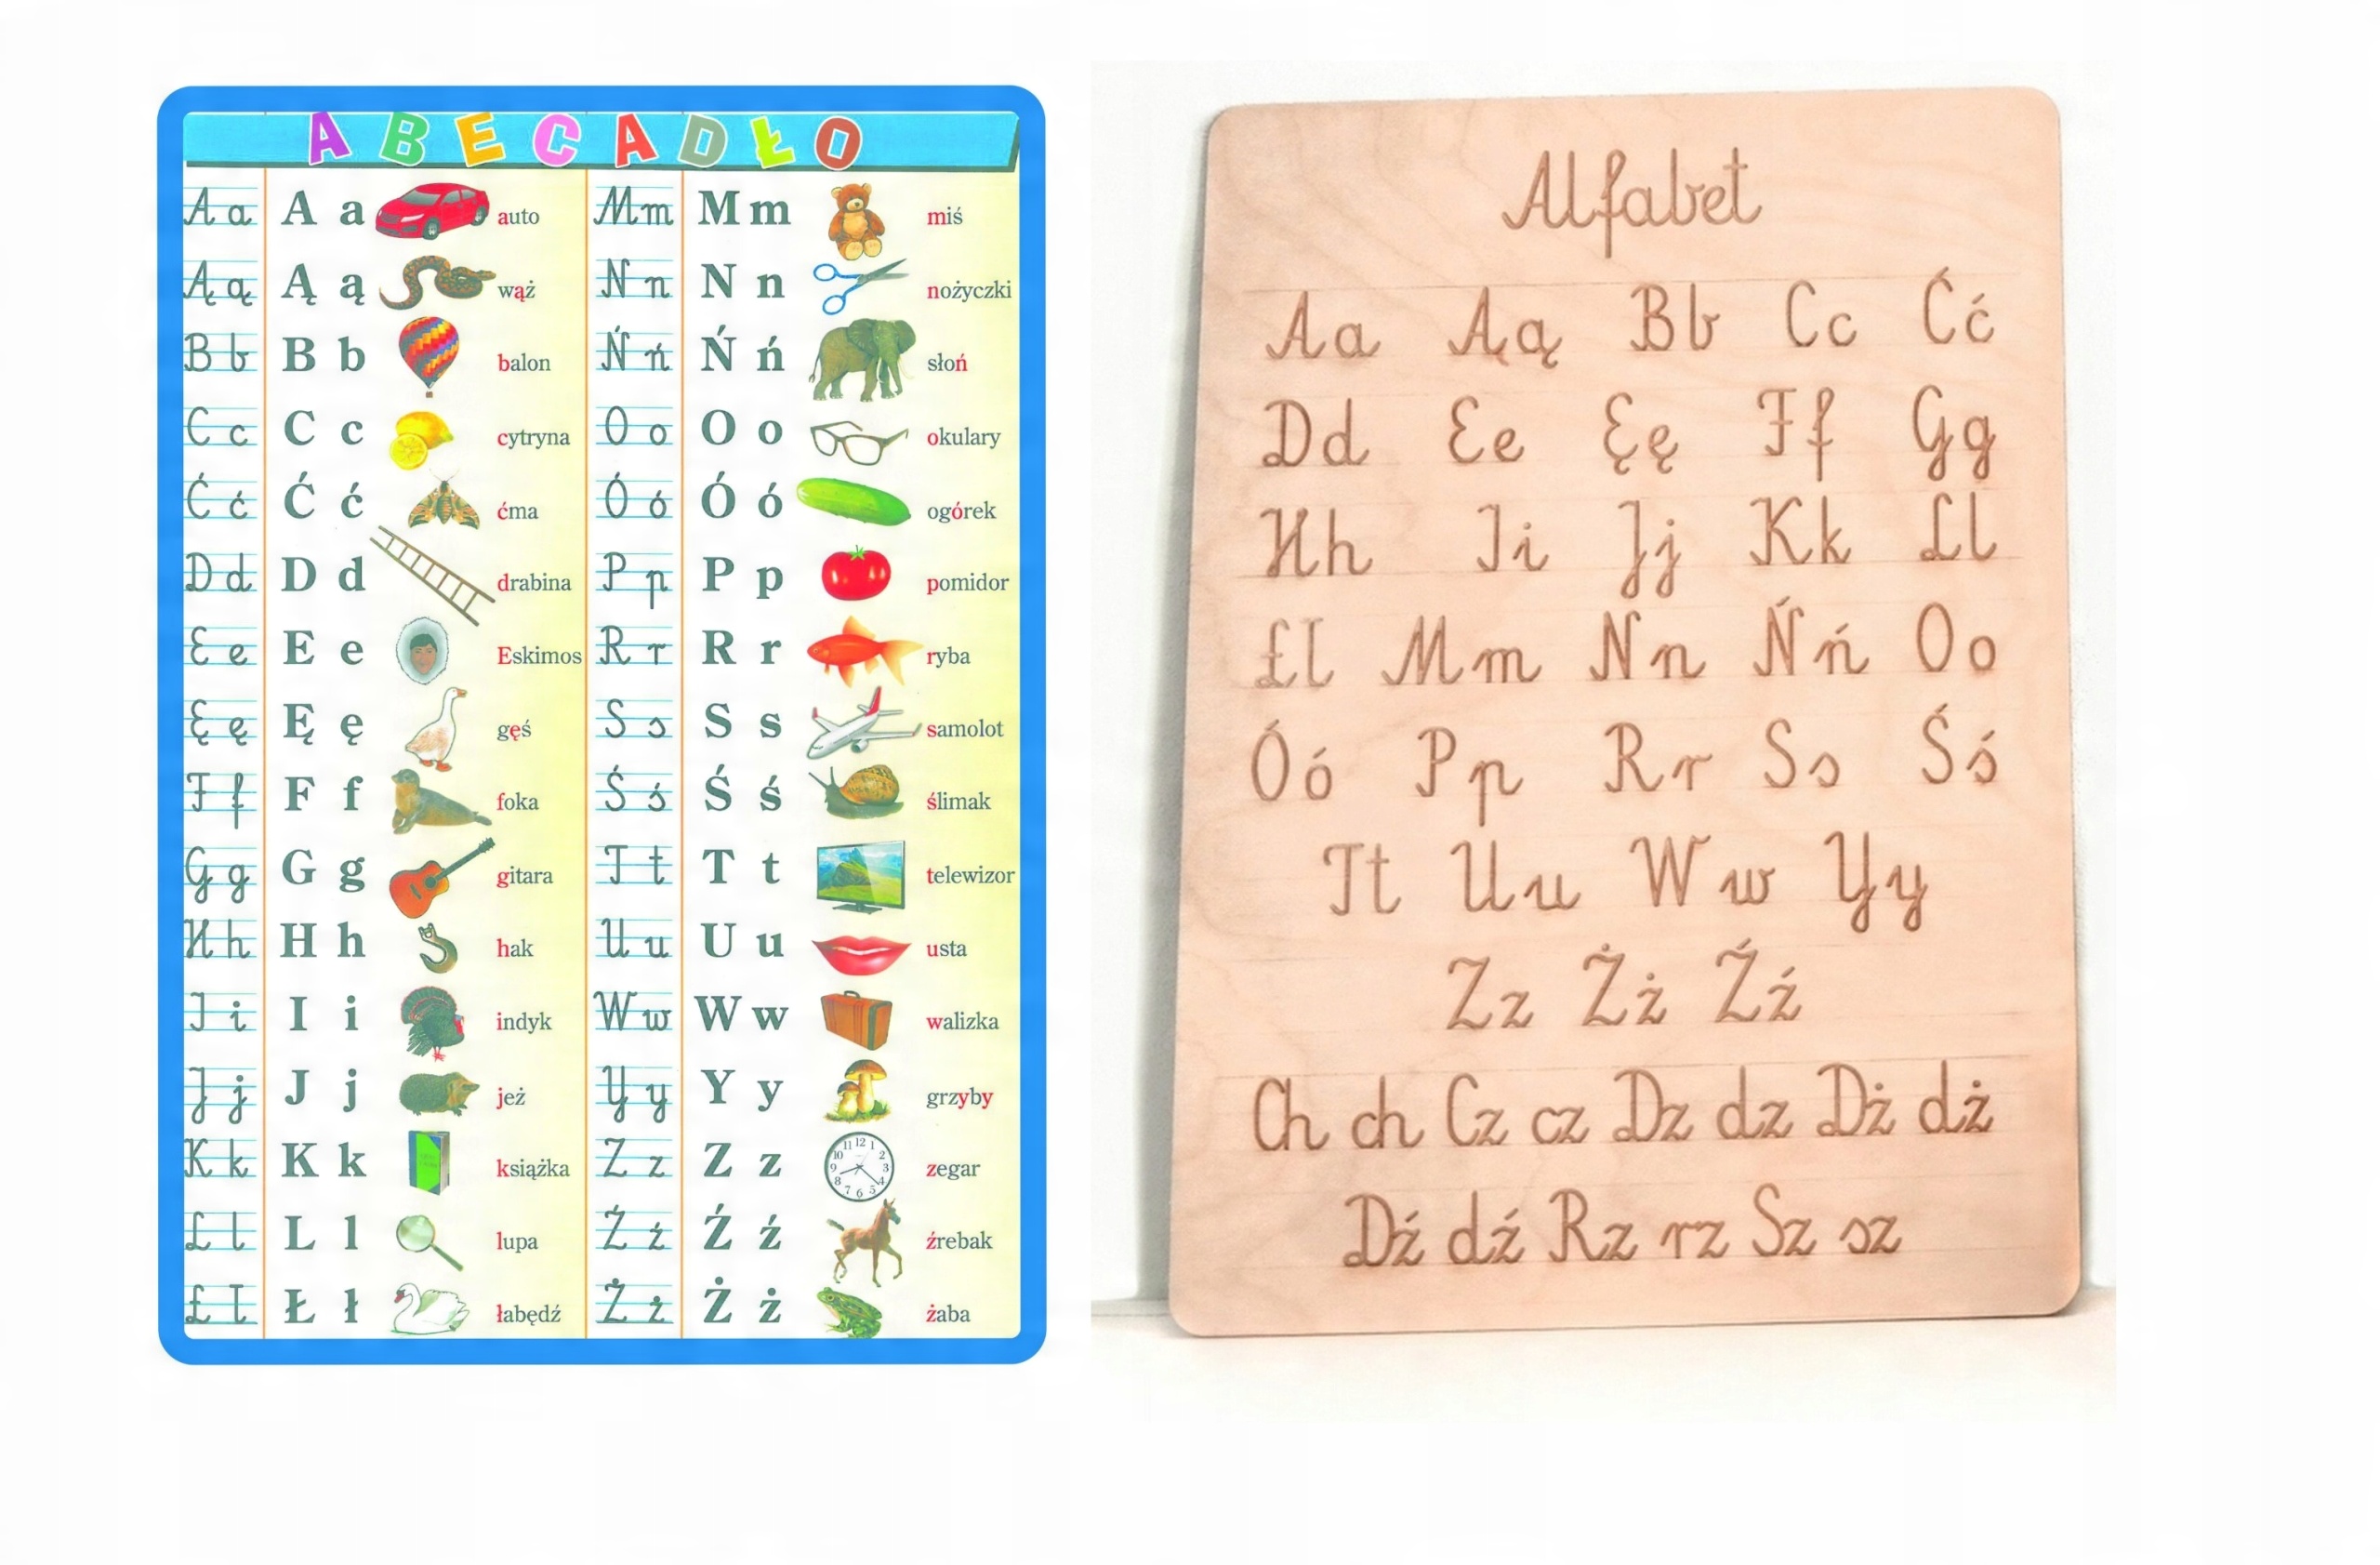 ABECADŁO
A a A a auto
Ą ą Ą ą wąż
B b B b balon
C c C c cytryna
Ć ć Ć ć ćma
D d D d drabina
E e E e Eskimos
Ę ę Ę ę gęś
F f F f foka
G g G g gitara
H h H h hak
I i I i indyk
J j J j jeż
K k K k książka
L l L l lupa
Ł ł Ł ł łabędź
M m M m miś
N n N n nożyczki
Ń ń Ń ń słoń
O o O o okulary
Ó ó Ó ó ogórek
P p P p pomidor
R r R r ryba
S s S s samolot
Ś ś Ś ś ślimak
T t T t telewizor
U u U u usta
W w W w walizka
Y y Y y grzyby
Z z Z z zegar
Ź ź Ź ź źrebak
Ż ż Ż ż żaba
Alfabet
Aa Aą Bb Cc Ćć
Dd Ee Ęę Ff Gg
Hh Ii Jj Kk Ll
Łł Mm Nn Ńń Oo
Óó Pp Rr Ss Śś
Tt Uu Ww Yy
Zz Żż Źź
Ch ch Cz cz Dz dz Dż dż
Dź dź Rz rz Sz sz